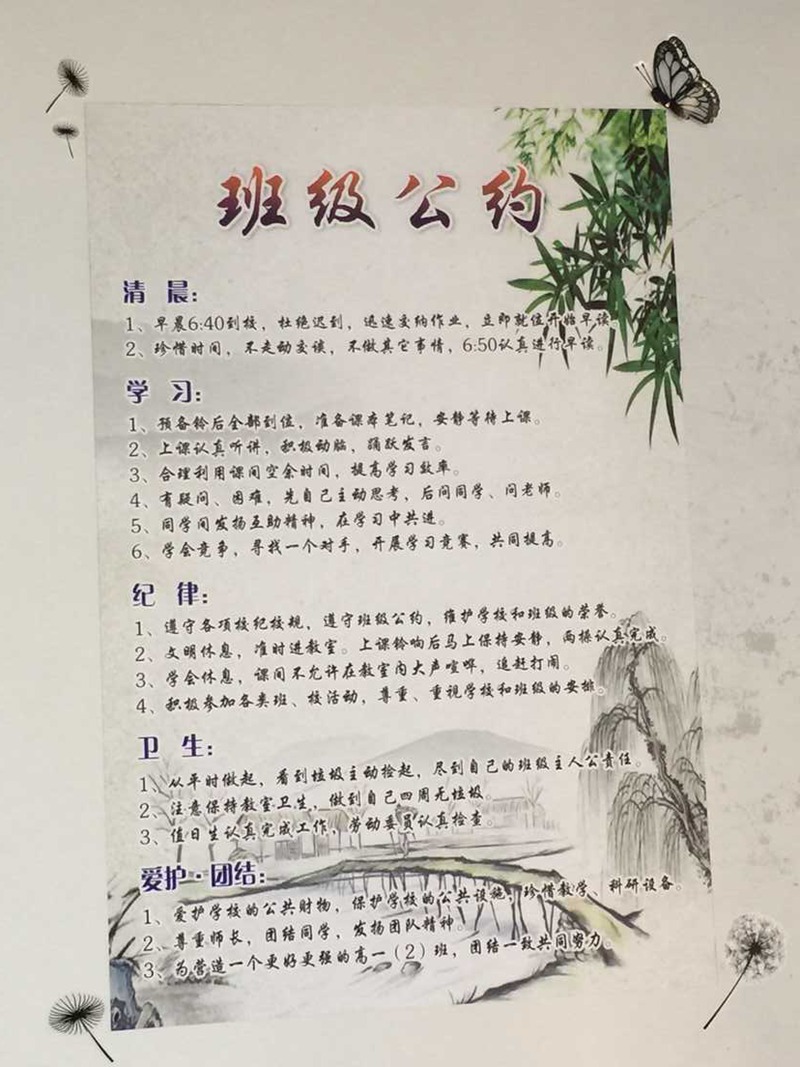 班级公约
清晨：
1、早晨6:40到校，杜绝迟到，迅速交纳作业，立即就位开始早读。
2、珍惜时间，不走动交谈，不做其它事情，6:50认真进行早读。
学习：
1、预备铃后全部到位，准备课本笔记，安静等待上课。
2、上课认真听讲，积极动脑，踊跃发言。
3、合理利用课间空余时间，提高学习效率。
4、有疑问、困难，先自己主动思考，后问同学、问老师。
5、同学间发扬互助精神，在学习中共进。
6、学会竞争，寻找一个对手，开展学习竞赛，共同提高。
纪律：
1、遵守各项校纪校规，遵守班级公约，维护学校和班级的荣誉。
2、文明休息，准时进教室。上课铃响后马上保持安静，两操认真完成。
3、学会休息，课间不允许在教室内大声喧哗，追赶打闹。
4、积极参加各类班、校活动，尊重、重视学校和班级的安排。
卫生：
1、从平时做起，看到垃圾主动捡起，尽到自己的班级主人公责任。
2、注意保持教室卫生，做到自己四周无垃圾。
3、值日生认真完成工作，劳动委员认真检查。
爱护·团结：
1、爱护学校的公共财物，保护学校的公共设施，珍惜教学、科研设备。
2、尊重师长，团结同学，发扬团队精神。
3、为营造一个更好更强的高一（2）班，团结一致共同努力。